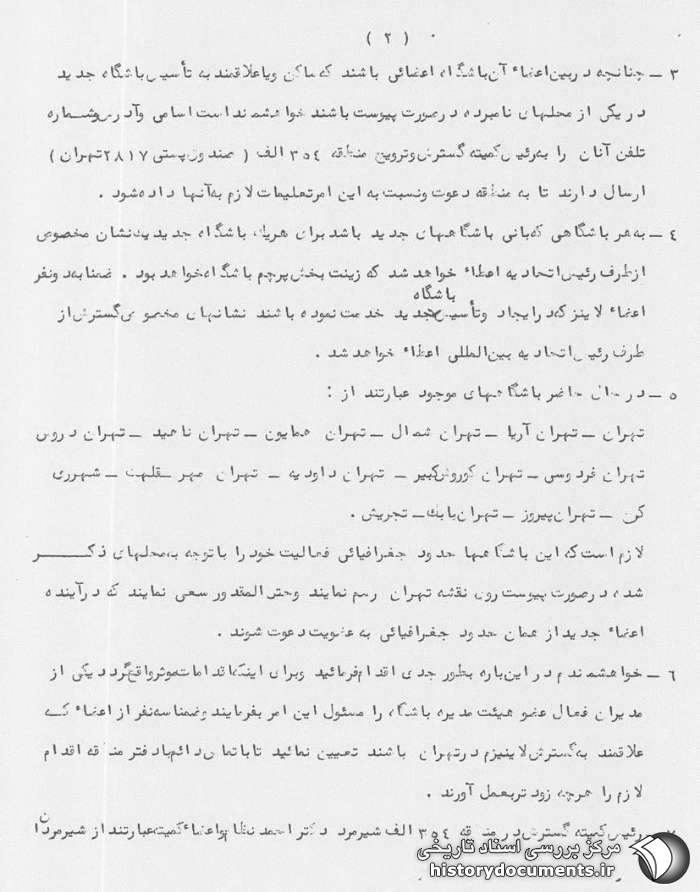 ( ۲ )
۳ ــ چنانچه در بین اعضاء آن باشگاه اعضائی باشند که ساکن ویا علاقمند به تأسیس باشگاه جدید
در یکی از محلهای نامبرده در صورت پیوست باشند خواهشمند است اسامی وآدرس وشماره
تلفن آنان را به رئیس کمیته گسترش وترویج منطقه ۳۵٤ الف ( صندوق پستی ۲۸۱۷ تهران )
ارسال دارند تا به منطقه دعوت ونسبت به این امر تعلیمات لازم به آنها داده شود .
٤ ــ به هر باشگاهی که بانی باشگاههای جدید باشد برای هر یك باشگاه جدید یك نشان مخصوص
از طرف رئیس اتحادیه اعطاء خواهد شد که زینت بخش پرچم باشگاه خواهد بود . ضمنا به دو نفر
باشگاه
اعضاء لاینز که در ایجاد وتأسیس جدید خدمت نموده باشند نشانهای مخصوص گسترش از
طرف رئیس اتحادیه بین المللی اعطاء خواهد شد .
٥ ــ در حال حاضر باشگاههای موجود عبارتند از :
تهران ــ تهران آریا ــ تهران شمال ــ تهران همایون ــ تهران ناهید ــ تهران دروس
تهران فردوسی ــ تهران کوروش کبیر ــ تهران داودیه ــ تهران مهر ــ قلهك ــ شهرری
کن ــ تهران پیروز ــ تهران بابك ــ تجریش .
لازم است که این باشگاهها حدود جغرافیائی فعالیت خود را با توجه به محلهای ذکر
شده در صورت پیوست روی نقشه تهران رسم نمایند وحتی المقدور سعی نمایند که در آینده
اعضاء جدید از همان حدود جغرافیائی به عضویت دعوت شوند .
٦ ــ خواهشمندم در این باره بطور جدی اقدام فرمائید وبرای اینکه اقدامات موثر واقع گردد یکی از
مدیران فعال عضو هیئت مدیره باشگاه را مسئول این امر بفرمایند وضمنا سه نفر از اعضاء که
علاقمند به گسترش لاینیزم در تهران باشند تعیین نمائید تا با تماس دائم با دفتر منطقه اقدام
لازم را هرچه زودتر بعمل آورند .
۷ ــ رئیس کمیته گسترش در منطقه ۳۵٤ الف شیرمرد دکتر احمد نظام واعضاء کمیته عبارتند از شیرمردان
مرکز بررسی اسناد تاریخی
historydocuments.ir